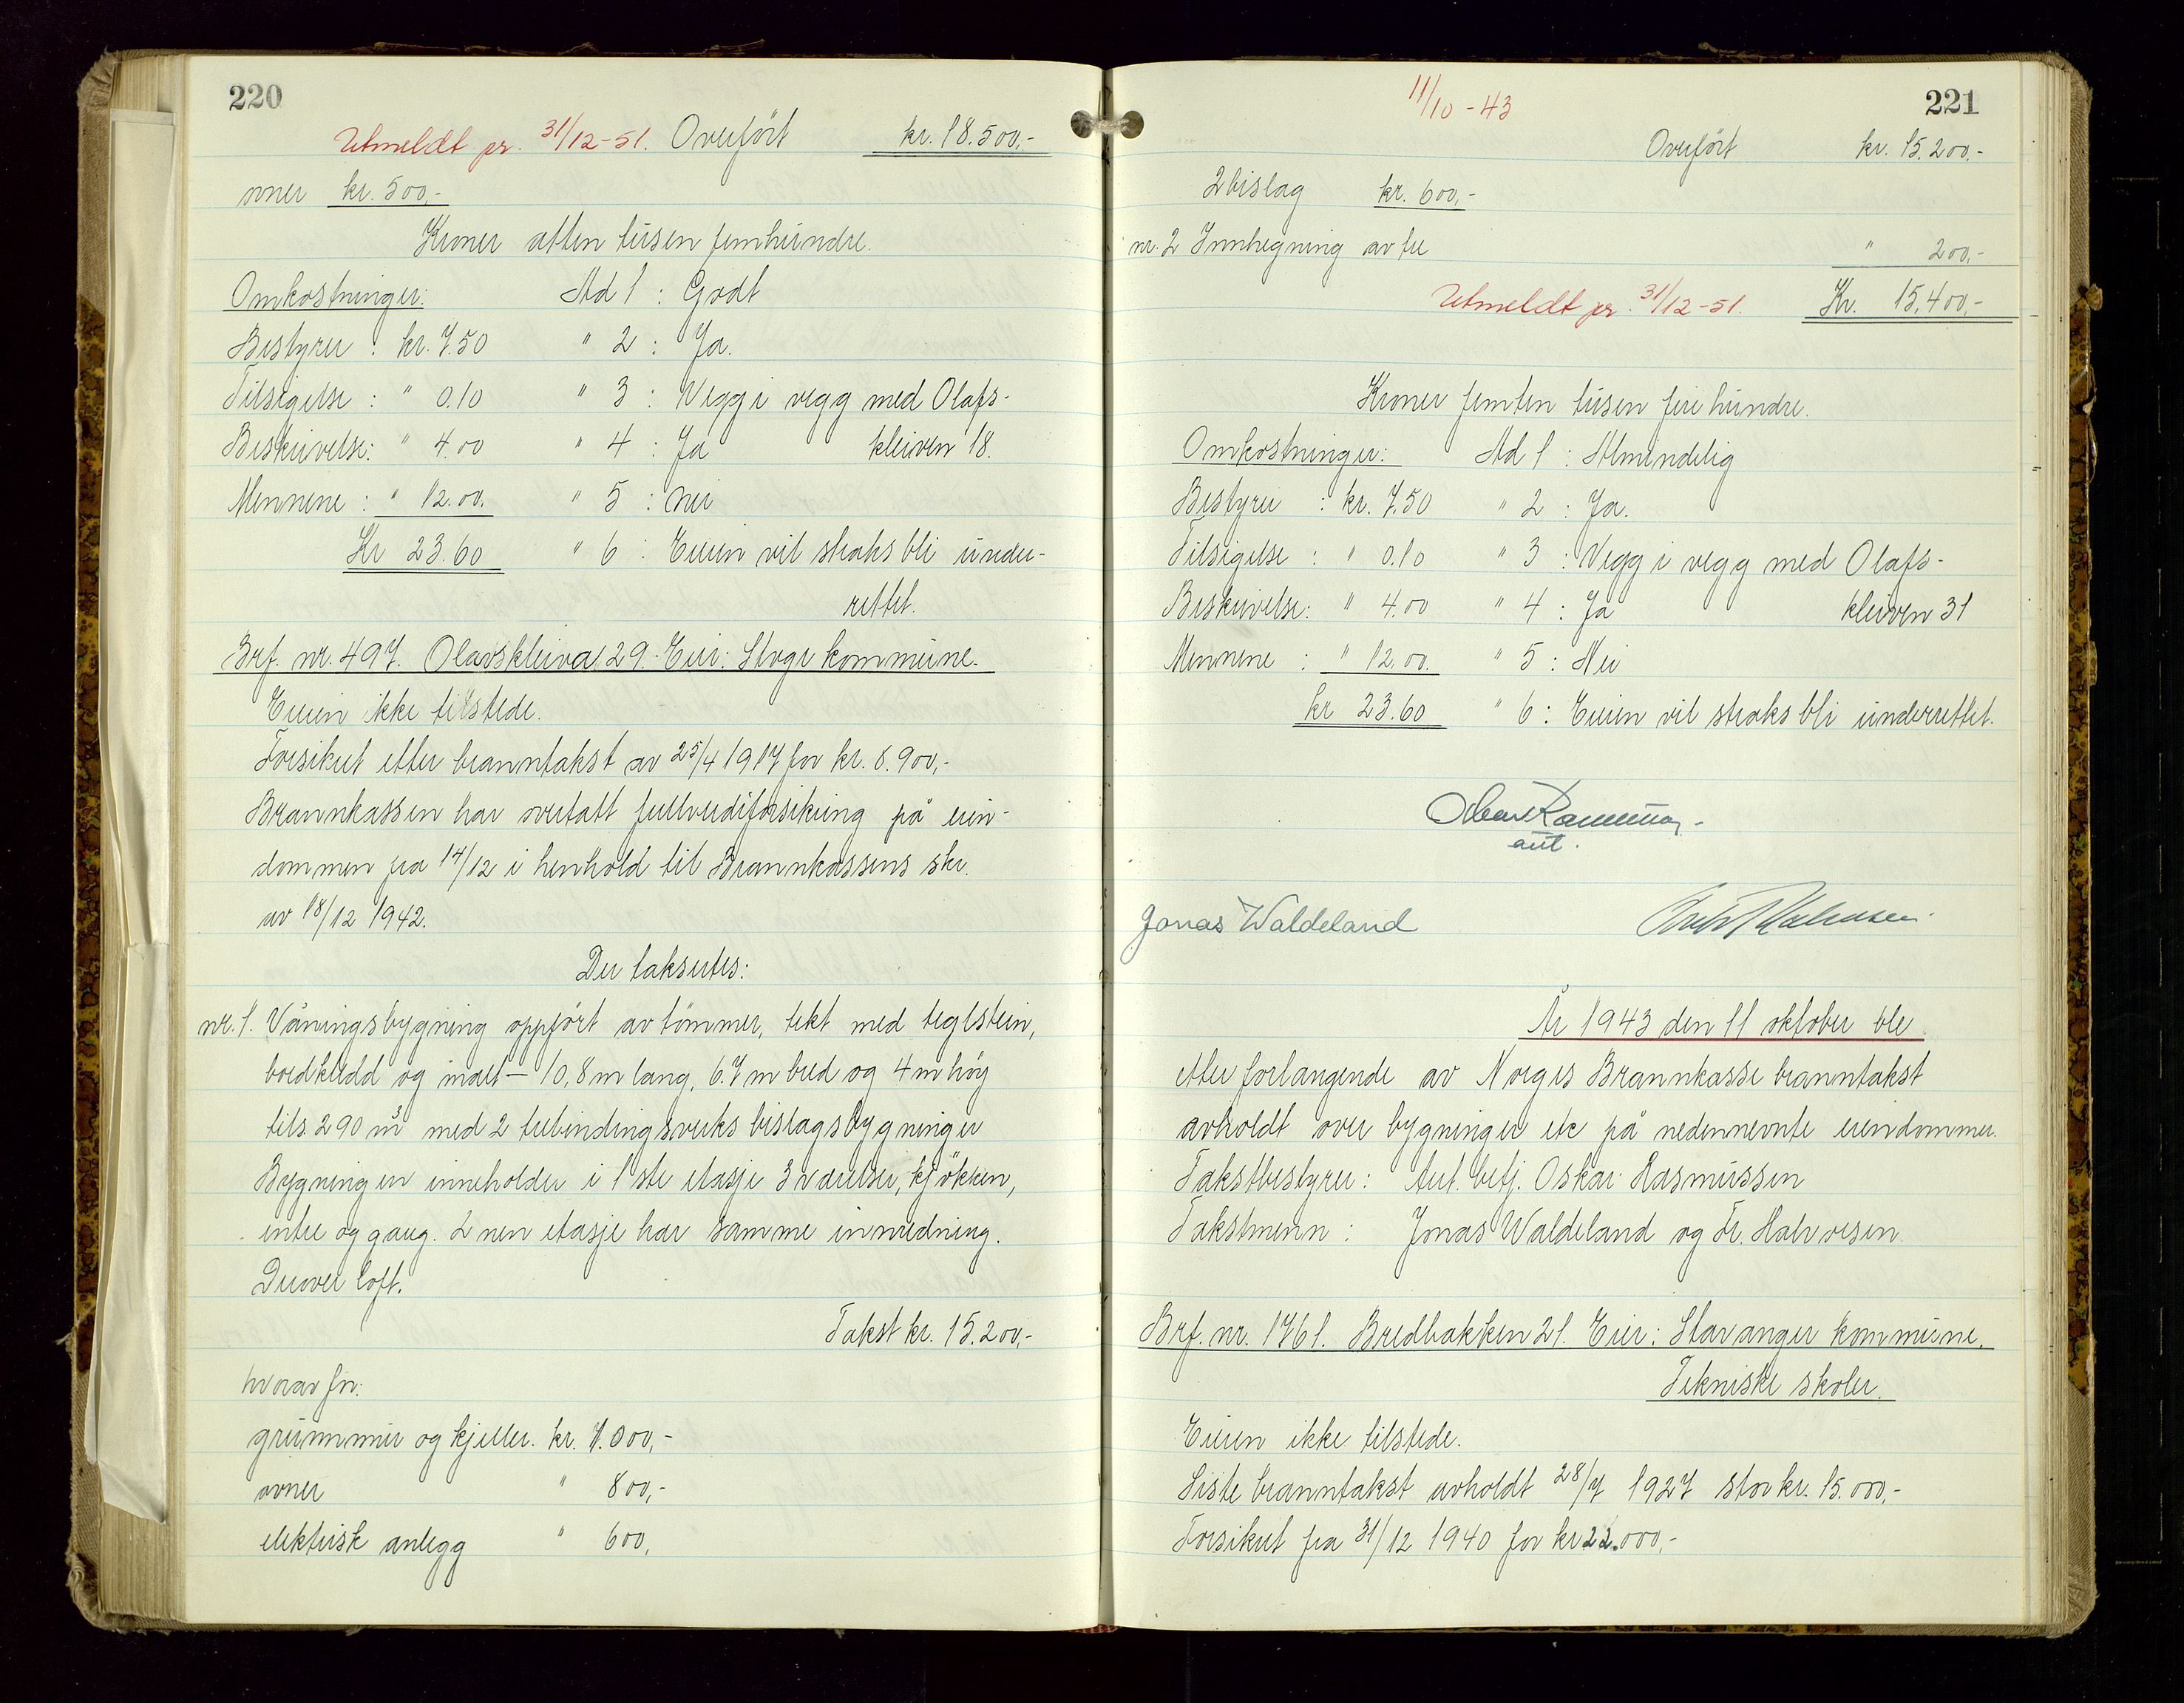 220
Utmeldt pr. 31/12-51. Overført kr. 18.500,-
ovner kr. 500,-
Kroner atten tusen femhundre.
Omkostninger: Ad 1 : Godt
Bestyrer : kr. 7.50 " 2 : Ja.
Tilsigelse : " 0.10 " 3 : Vegg i vegg med Olafs-
Beskrivelse: " 4.00 " 4 : Ja kleiven 18.
Mennene : " 12.00. " 5 : Nei
Kr 23.60 " 6 : Eieren vil straks bli under-
rettet.
Brf. nr. 497. Olavskleiva 29. Eier: Stvgr kommune.
Eieren ikke tilstede.
Forsikret etter branntakst av 25/4 1917 for kr. 8.900,-
Brannkassen har overtatt fullverdiforsikring på eien-
dommen fra 14/12 i henhold til Brannkassens skr.
av 18/12 1942.
Der takseres:
nr. 1. Våningsbygning oppført av tømmer, tekt med teglstein,
bordkledd og malt — 10,8 m lang, 6.7 m bred og 4 m høy
tils. 290 m³ med 2 trebindingsverks bislagsbygninger
Bygningen inneholder i 1ste etasje 3 værelser, kjøkken,
entre og gang. 2nen etasje har samme innredning.
Derover loft.
Takst kr. 15.200,-
hvorav for:
grunnmur og kjeller. kr. 1.000,-
ovner " 800,-
elektrisk anlegg " 600,
11/10 - 43
221
Overført kr. 15.200,-
2 bislag kr. 600,-
nr. 2 Innhegning av tre " 200,-
Utmeldt pr. 31/12-51. Kr. 15.400,-
Kroner femten tusen fire hundre.
Omkostninger: Ad 1 : Almindelig
Bestyrer : kr. 7.50 " 2 : Ja.
Tilsigelse : " 0.10 " 3 : Vegg i vegg med Olafs-
Beskrivelse: " 4.00 " 4 : Ja kleiven 31
Mennene : " 12.00. " 5 : Nei
kr 23.60 " 6 : Eieren vil straks bli underrettet.
Oskar Rasmussen
aut.
Jonas Waldeland Fredr Halvorsen
År 1943 den 11 oktober ble
etter forlangende av Norges Brannkasse branntakst
avholdt over bygninger etc på nedennevnte eiendommer.
Takstbestyrer: Aut. betj. Oskar Rasmussen
Takstmenn : Jonas Waldeland og Fr. Halvorsen.
Brf. nr. 1761. Bredbakken 21. Eier: Stavanger kommune.
Tekniske skoler.
Eieren ikke tilstede.
Siste branntakst avholdt 28/7 1927 stor kr. 15.000,-
Forsikret fra 31/12 1940 for kr 22.000,-